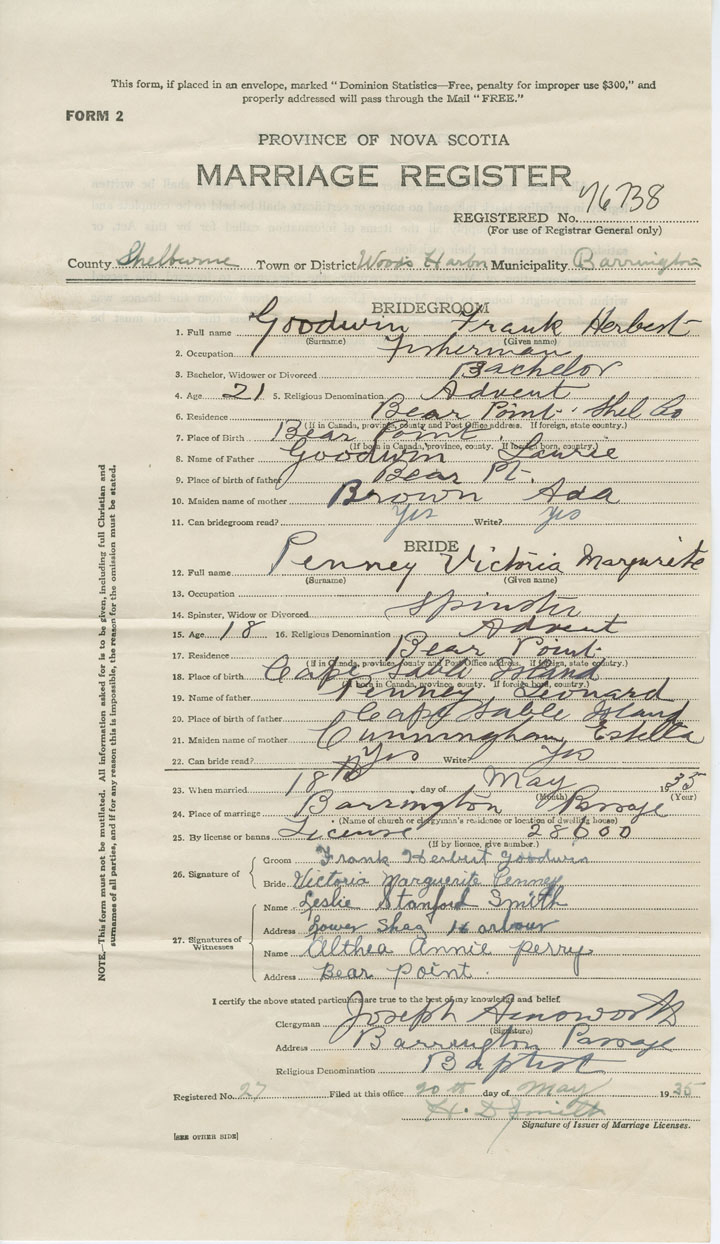 This form, if placed in an envelope, marked "Dominion Statistics—Free, penalty for improper use $300," and
properly addressed will pass through the Mail "FREE."
FORM 2
PROVINCE OF NOVA SCOTIA
MARRIAGE REGISTER
REGISTERED No. 76738
(For use of Registrar General only)
County Shelburne Town or District Woods Harbor Municipality Barrington
BRIDEGROOM
1. Full name Goodwin Frank Herbert
(Surname) (Given name)
2. Occupation Fisherman
3. Bachelor, Widower or Divorced Bachelor
4. Age 21 5. Religious Denomination Advent
6. Residence Bear Point Shel Co
(If in Canada, province, county and Post Office address. If foreign, state country.)
7. Place of Birth Bear Point
(If born in Canada, province, county. If foreign born, country.)
8. Name of Father Goodwin Laurie
9. Place of birth of father Bear Pt.
10. Maiden name of mother Brown Ada
11. Can bridegroom read? Yes Write? Yes
BRIDE
12. Full name Penney Victoria Margurite
(Surname) (Given name)
13. Occupation
14. Spinster, Widow or Divorced Spinster
15. Age 18 16. Religious Denomination Advent
17. Residence Bear Point
(If in Canada, province, county and Post Office address. If foreign, state country.)
18. Place of birth Cape Sable Island
(If born in Canada, province, county. If foreign born, country.)
19. Name of father Penney Leonard
20. Place of birth of father Cape Sable Island
21. Maiden name of mother Cunningham Estella
22. Can bride read? Yes Write? Yes
23. When married 18th day of May 1935
(Month) (Year)
24. Place of marriage Barrington Passage
(Name of church or clergyman's residence or location of dwelling house)
25. By license or banns License 28600
(If by licence, give number.)
26. Signature of Groom Frank Herbert Goodwin
Bride Victoria Marguerite Penney
27. Signatures of Witnesses
Name Leslie Stanford Smith
Address Lower Shag Harbour
Name Althea Annie Perry
Address Bear Point.
I certify the above stated particulars are true to the best of my knowledge and belief.
Clergyman Joseph Ainsworth
(Signature)
Address Barrington Passage
Religious Denomination Baptist
Registered No. 27 Filed at this office 20th day of May 1935
H. D. Smith
Signature of Issuer of Marriage Licenses.
[SEE OTHER SIDE]
NOTE.—This form must not be mutilated. All information asked for is to be given, including full Christian and
surnames of all parties, and if for any reason this is impossible, the reason for the omission must be stated.